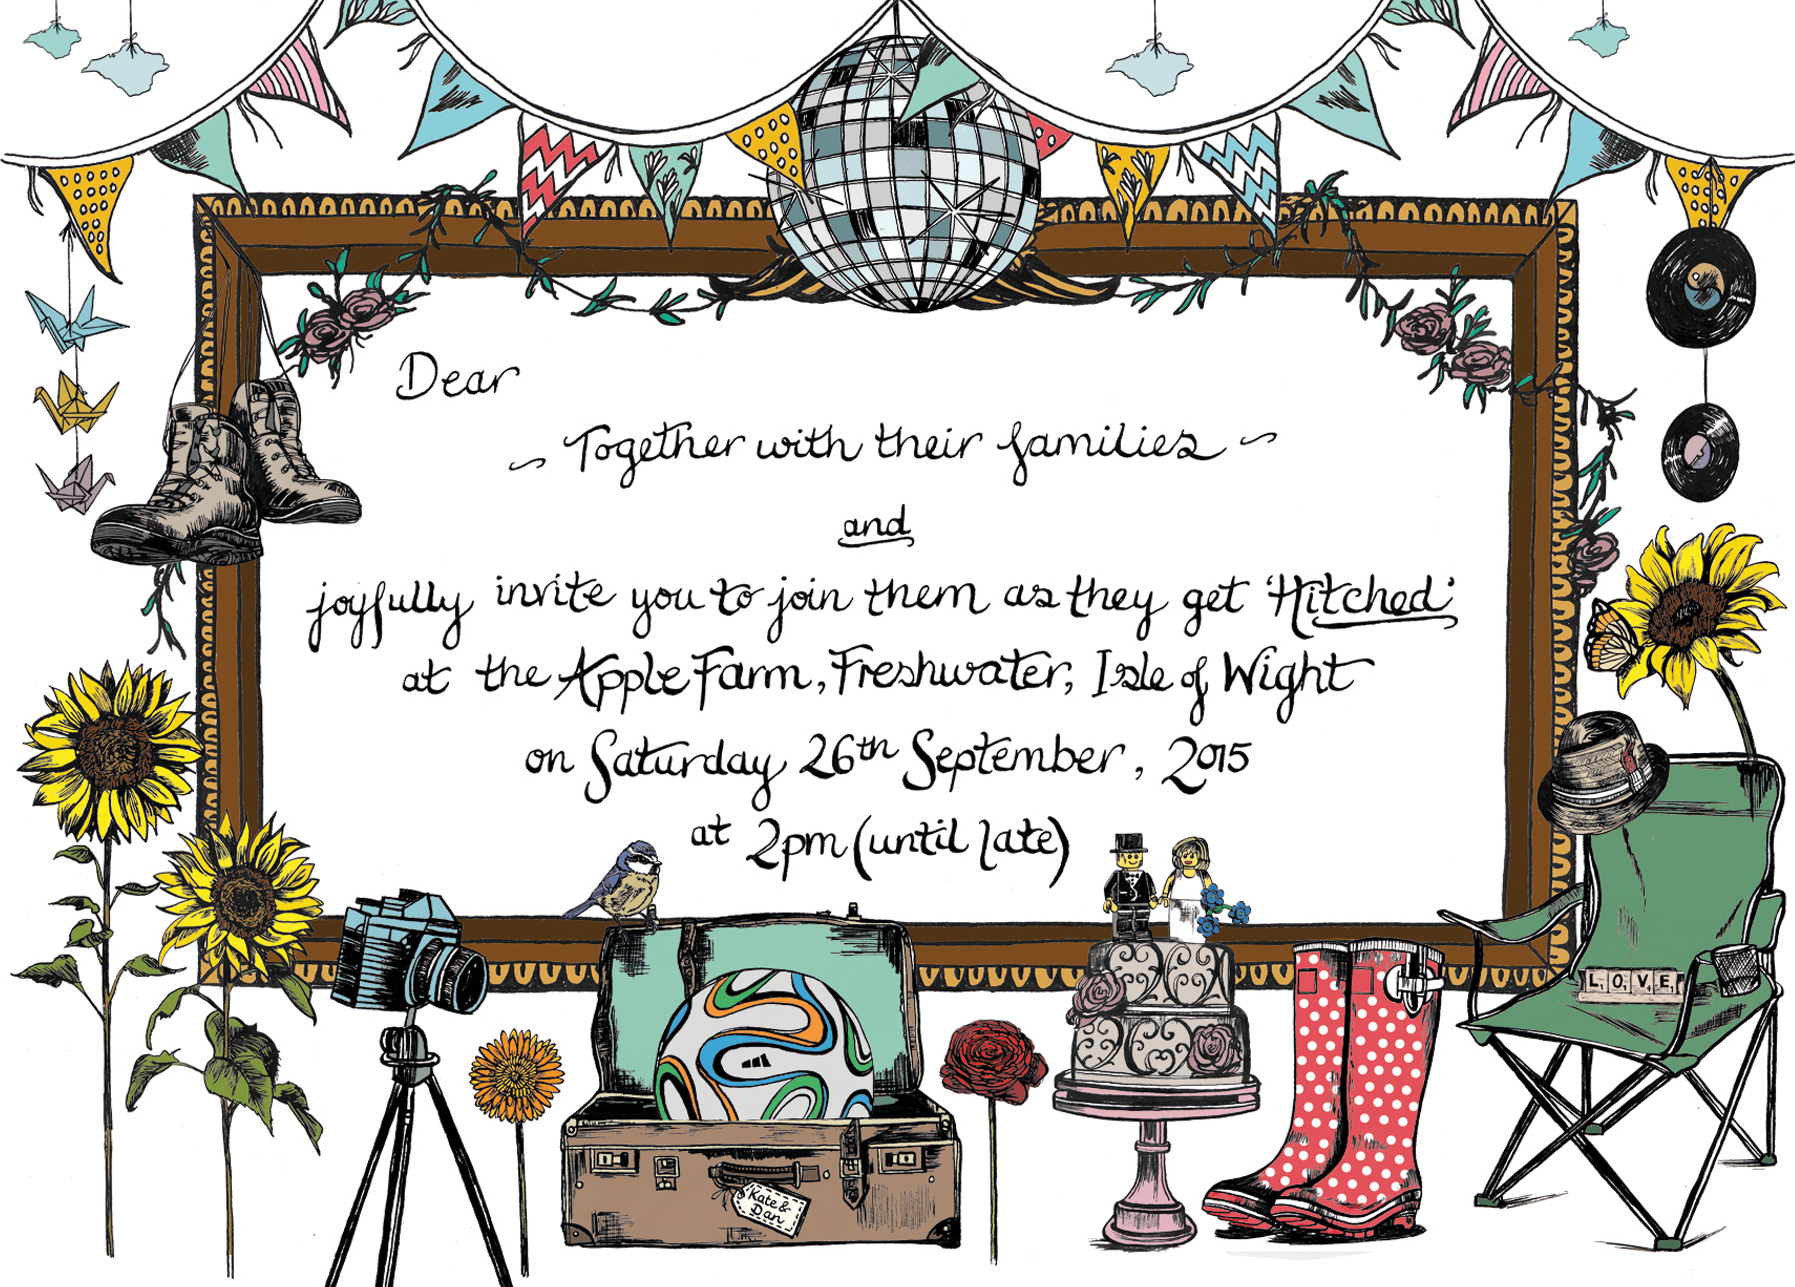 Dear
~ Together with their families ~
and
joyfully invite you to join them as they get 'Hitched'
at the Apple Farm, Freshwater, Isle of Wight
on Saturday 26th September, 2015
at 2pm (until late)
LOVE
Kate &
Dan